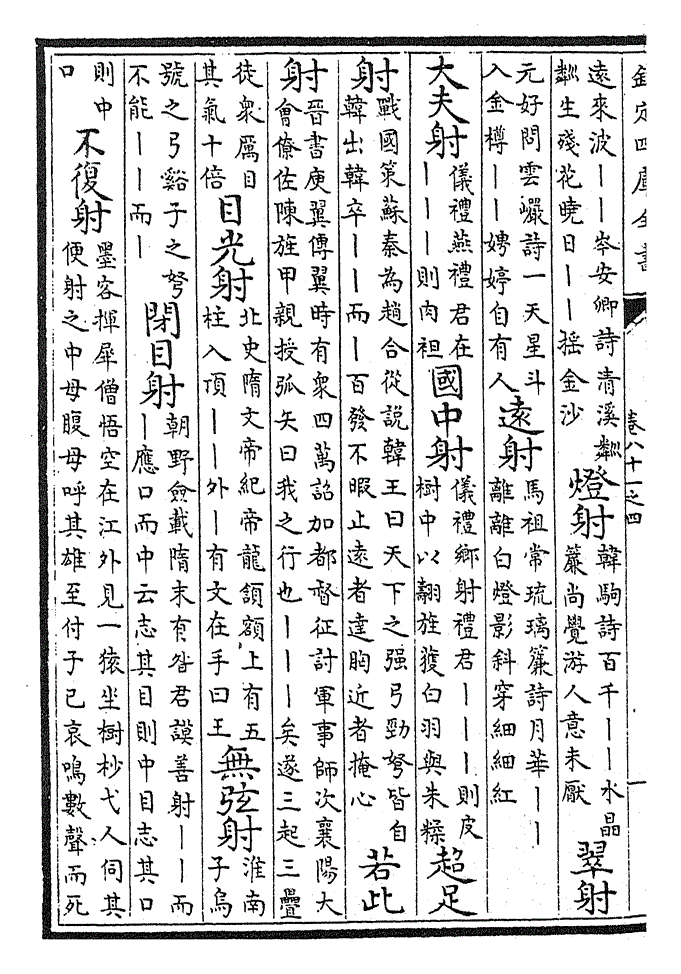 欽定四庫全書 卷八十一之四
遠來波丨丨岑安卿詩青溪粼
粼生殘花曉日丨丨揺金沙
燈射
韓駒詩百千丨丨水晶
簾尚覺游人意未厭
翠射
元好問雲巖詩一天星斗
入金樽丨丨娉婷自有人
遠射
馬祖常琉璃簾詩月華丨丨
離離白燈影斜穿細細紅
大夫射
儀禮燕禮君在
丨丨丨則肉袒
國中射
儀禮鄉射禮君丨丨丨則皮
樹中以翿旌獲白羽與朱糅
超足
射
戰國策蘇秦為趙合從說韓王曰天下之强弓勁弩皆自
韓出韓卒丨丨而丨百發不暇止遠者達胸近者掩心
若此
射
晉書庾翼傳翼時有衆四萬詔加都督征討軍事師次襄陽大
會僚佐陳旌甲親授弧矢曰我之行也丨丨丨矣遂三起三疊
徒衆屬目
其氣十倍
目光射
北史隋文帝紀帝龍頷額上有五
柱入頂丨丨外丨有文在手曰王
無弦射
淮南
子烏
號之弓谿子之弩
不能丨丨而丨
閉目射
朝野僉載隋末有昝君謨善射丨丨而
丨應口而中云志其目則中目志其口
則中
口
不復射
墨客揮犀僧悟空在江外見一猿坐樹杪弋人伺其
便射之中母腹母呼其雄至付子已哀鳴數聲而死